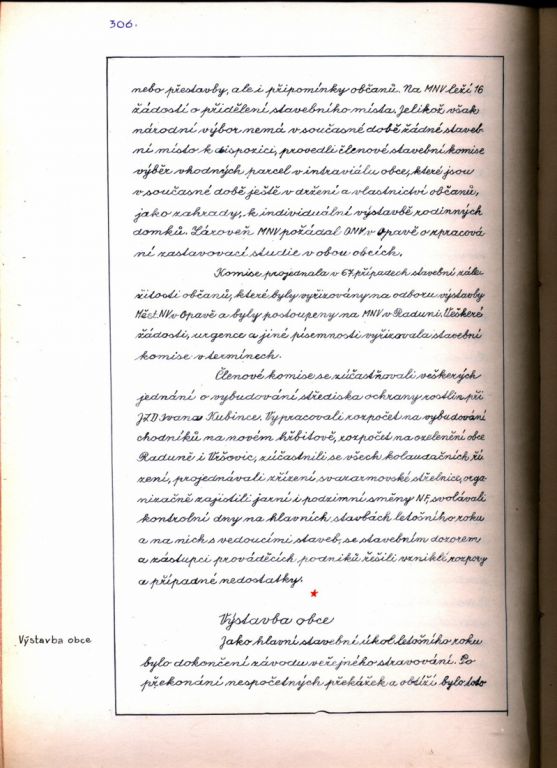 306.
nebo přestavby, ale i připomínky občanů. Na MNV leží 16
žádostí o přidělení stavebního místa. Jelikož však
národní výbor nemá v současné době žádné staveb
ní místo k dispozici, provedli členové stavební komise
výběr vhodných parcel v intraviálu obce, které jsou
v současné době ještě v držení a vlastnictví občanů,
jako zahrady, k individuální výstavbě rodinných
domků. Zároveň MNV požádal ONV v Opavě o zpracová
ní zastavovací studie v obou obcích.
Komise projednala v 67. případech stavební zále
žitosti občanů, které byly vyřizovány na odboru výstavby
Měst.NV v Opavě a byly postoupeny na MNV v Raduni. Veškeré
žádosti, urgence a jiné písemnosti vyřizovala stavební
komise v termínech.
Členové komise se zúčastňovali veškerých
jednání o vybudování střediska ochrany rostlin při
JZD Ivana Kubince. Vypracovali rozpočet na vybudování
chodníků na novém hřbitově, rozpočet na ozelenění obce
Raduně i Vršovic, zúčastnili se všech kolaudačních ří
zení, projednávali zřízení svazarmovské střelnice, orga
nizačně zajistili jarní i podzimní směny NF, svolávali
kontrolní dny na hlavních stavbách letošního roku
a na nich s vedoucími staveb, se stavebním dozorem
a zástupci prováděcích podniků řešili vzniklé rozpory
a případné nedostatky.
Výstavba obce
Výstavba obce
Jako hlavní stavební úkol letošního roku
bylo dokončení závodu veřejného stravování. Po
překonání nespočetných překážek a obtíží bylo toto